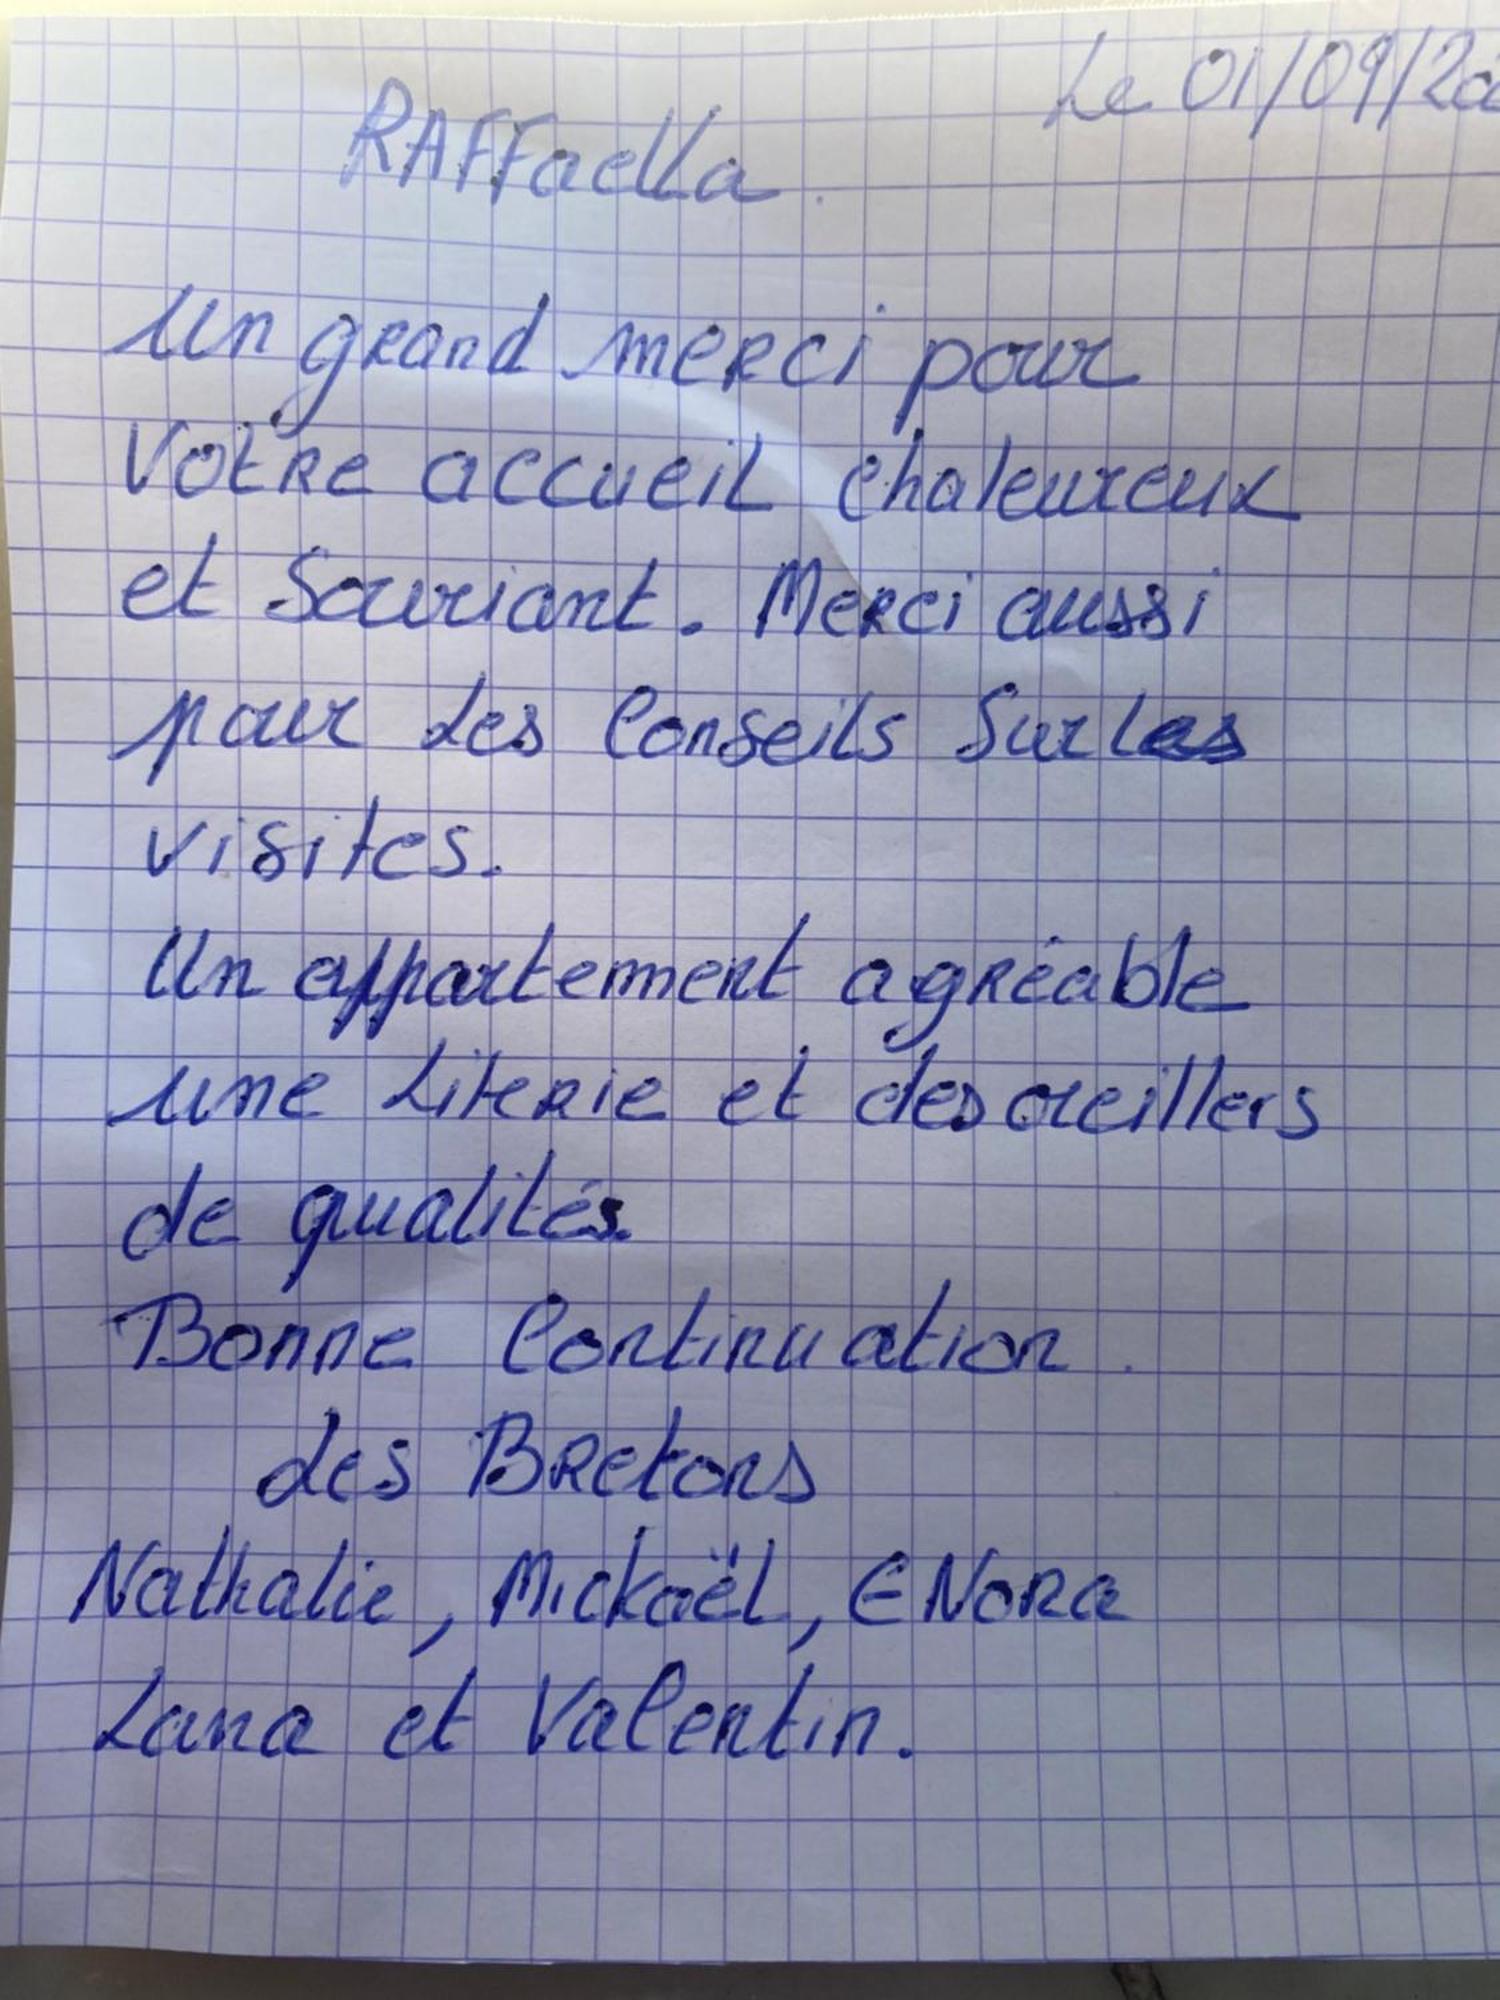 Le 01/09/20
RAFFaella.
Un grand merci pour
Votre accueil chaleureux
et Souriant. Merci aussi
pour les Conseils Sur les
visites.
Un appartement agréable
une Literie et des oreillers
de qualités.
Bonne Continuation.
des Bretons
Nathalie, Mickaël, ENORa
Lana et Valentin.